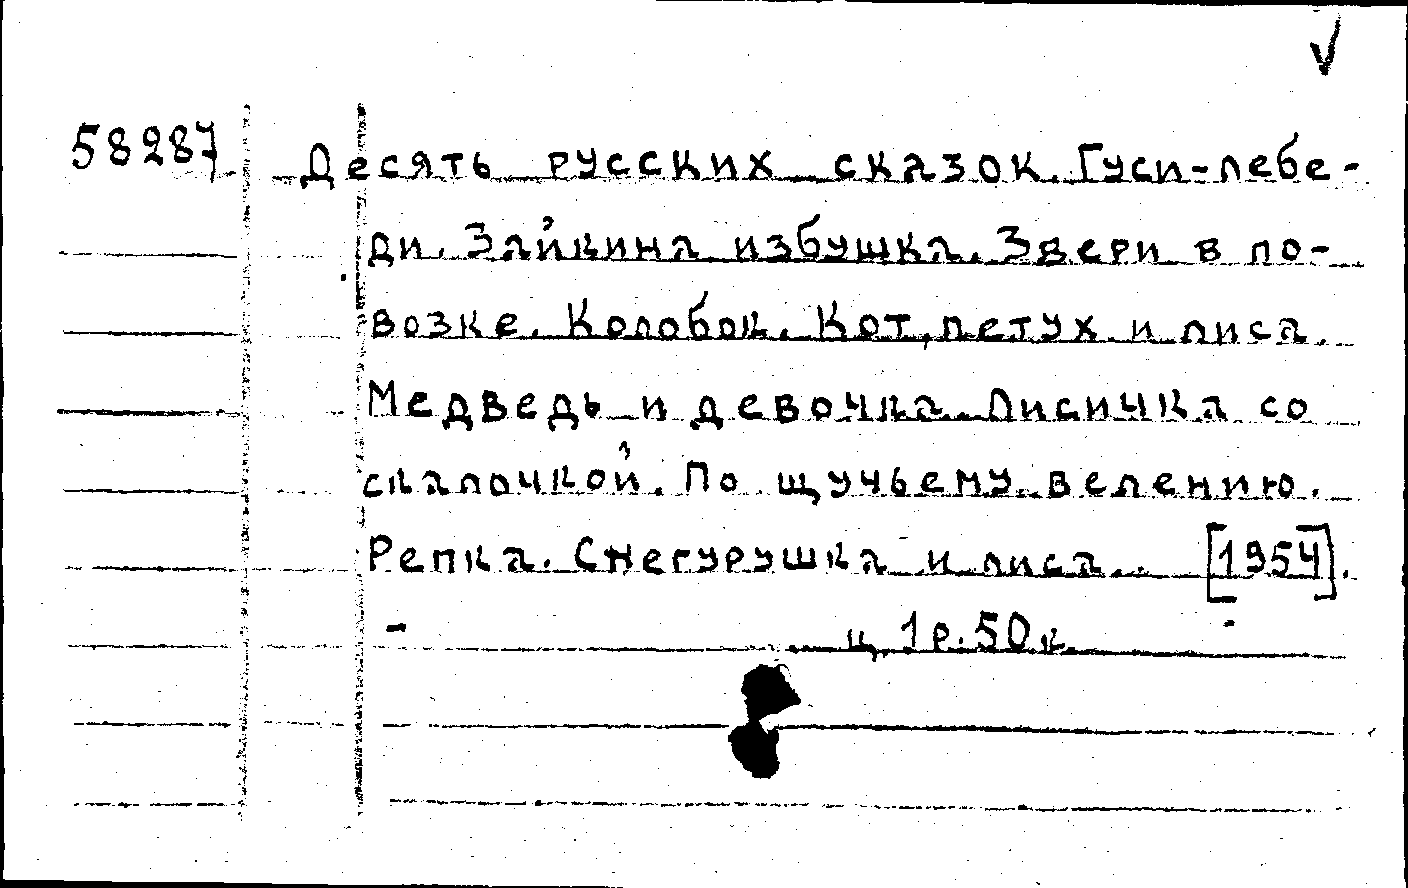 58287 Десять русских сказок. Гуси-лебе-
ди. Зайкина избушка. Звери в по-
возке. Колобок. Кот, петух и лиса.
Медведь и девочка. Лисичка со
скалочкой. По щучьему велению.
Репка. Снегурушка и лиса. [1954].
ц. 1 р. 50 к.